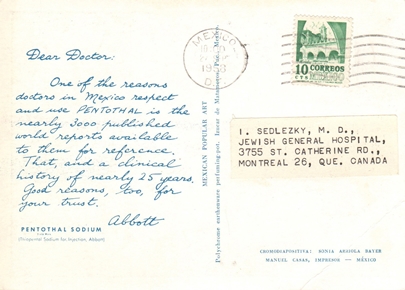 Dear Doctor:
One of the reasons
doctors in Mexico respect
and use PENTOTHAL is the
nearly 3000 published
world reports available
to them for reference.
That, and a clinical
history of nearly 25 years.
Good reasons, too, for
your trust.
Abbott
PENTOTHAL SODIUM
(Thiopental Sodium for Injection, Abbott)
MEXICAN POPULAR ART
Polychrome earthenware perfuming-pot.
MEXICO
CORREOS
10
CTS
I. SEDLEZKY, M. D.,
JEWISH GENERAL HOSPITAL,
3755 ST. CATHERINE RD.,
MONTREAL 26, QUE. CANADA
CROMODIAPOSITIVA: SONIA
MANUEL CASAS, IMPRESOS — MÉXICO